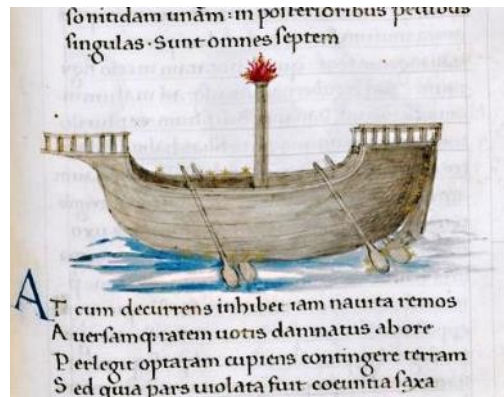 sonitidam unam: in posterioribus pedibus
singulas. Sunt omnes septem
AT cum decurrens inhibet iam nauita remos
Auersamq; ratem uotis damnatus ab ore
Perlegit optatam cupiens contingere terram
Sed quia pars uiolata fuit coeuntia saxa